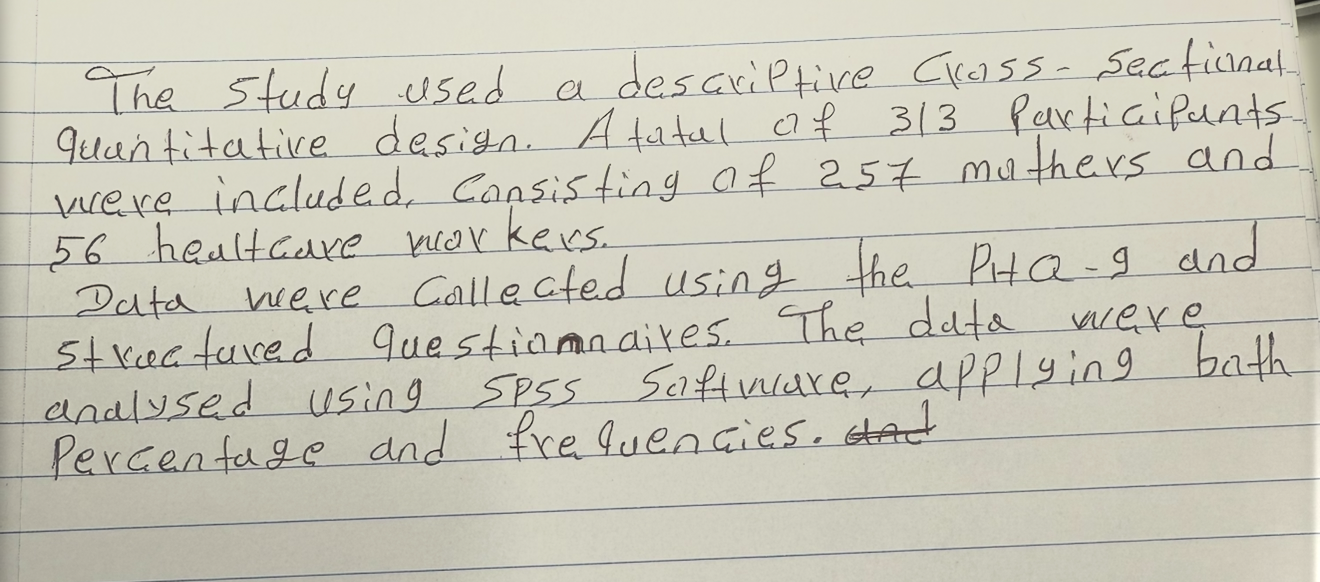 The study used a descriptive Cross-Sectional
quantitative design. A total of 313 Participants
were included, Consisting of 257 mothers and
56 healtcare workers.
Data were Collected using the PHQ-9 and
structured questionnaires. The data were
analysed using SPSS Software, applying both
Percentage and frequencies. and